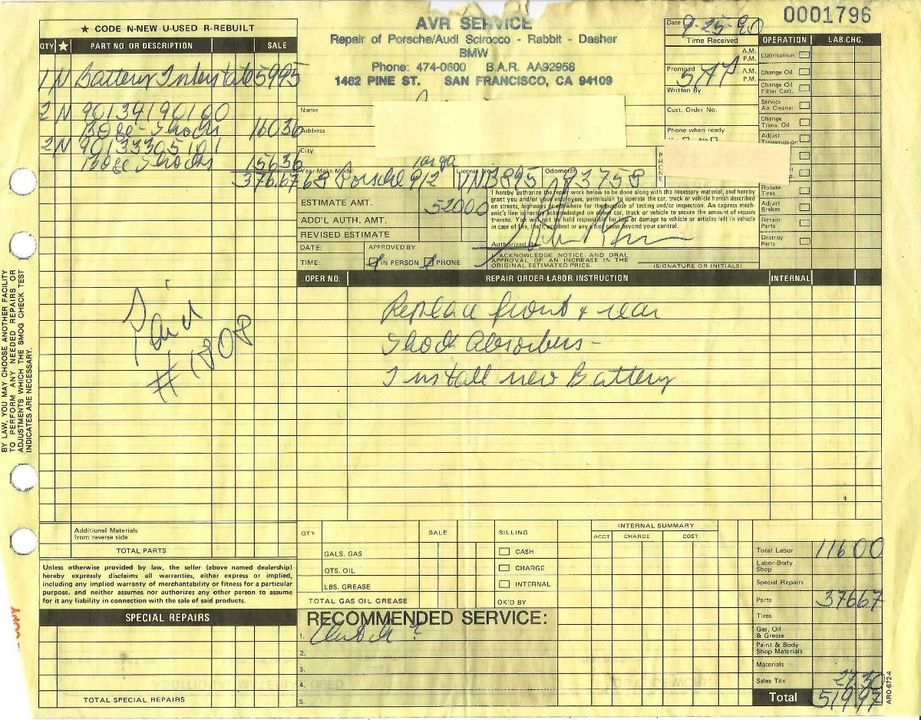 ★ CODE N-NEW U-USED R-REBUILT
QTY ★ PART NO. OR DESCRIPTION SALE
1 N Battery Interstate 5995
2 N 90134190100
Boge-Shocks 16036
2 N 90133305101
Boge Shocks 15636
37667
Paid
#1808
BY LAW, YOU MAY CHOOSE ANOTHER FACILITY
TO PERFORM ANY NEEDED REPAIRS OR
ADJUSTMENTS WHICH THE SMOG CHECK TEST
INDICATES ARE NECESSARY.
AVR SERVICE
Repair of Porsche/Audi Scirocco - Rabbit - Dasher
BMW
Phone: 474-0600 B.A.R. AA92958
1462 PINE ST. SAN FRANCISCO, CA 94109
Name
Address
City
Year-Make-Model License No. Odometer
68 Porsche 912 Targa 93758
ESTIMATE AMT. 52000
ADD'L AUTH. AMT.
REVISED ESTIMATE
DATE: APPROVED BY
TIME: IN PERSON PHONE
Date 9-25-90
Time Received
A.M.
P.M.
Promised 5 A.M.
P.M.
Written By
Cust. Order No.
Phone when ready
Yes No
PHONE
0001796
OPERATION LAB.CHG.
Lubrication
Change Oil
Change Oil
Filter Cart.
Service
Air Cleaner
Change
Trans. Oil
Adjust
Transmission
Rotate
Tires
Adjust
Brakes
Repair
Parts
Destroy
Parts
I hereby authorize the repair work below to be done along with the necessary material, and hereby
grant you and/or your employees, permission to operate the car, truck or vehicle herein described
on streets, highways or elsewhere for the purpose of testing and/or inspection. An express mech-
anic's lien is hereby acknowledged on above car, truck or vehicle to secure the amount of repairs
thereto. You will not be held responsible for loss or damage to vehicle or articles left in vehicle
in case of fire, theft, accident or any other cause beyond your control.
Authorized By
I ACKNOWLEDGE NOTICE AND ORAL
APPROVAL OF AN INCREASE IN THE
ORIGINAL ESTIMATED PRICE.
(SIGNATURE OR INITIALS)
OPER NO. REPAIR ORDER-LABOR INSTRUCTION INTERNAL
Replace front & rear
Shock Absorbers -
Install new Battery
Additional Materials
from reverse side
TOTAL PARTS
Unless otherwise provided by law, the seller (above named dealership)
hereby expressly disclaims all warranties, either express or implied,
including any implied warranty of merchantability or fitness for a particular
purpose, and neither assumes nor authorizes any other person to assume
for it any liability in connection with the sale of said products.
SPECIAL REPAIRS
TOTAL SPECIAL REPAIRS
COPY
QTY SALE BILLING
GALS. GAS CASH
QTS. OIL CHARGE
LBS. GREASE INTERNAL
TOTAL GAS OIL GREASE OK'D BY
INTERNAL SUMMARY
ACCT CHARGE COST
RECOMMENDED SERVICE:
1. Clutch ?
2.
3.
4.
5.
Total Labor 11600
Labor-Body
Shop
Special Repairs
Parts 37667
Tires
Gas, Oil
& Grease
Paint & Body
Shop Materials
Materials
Sales Tax 2730
Total 51997
ARO-672-4